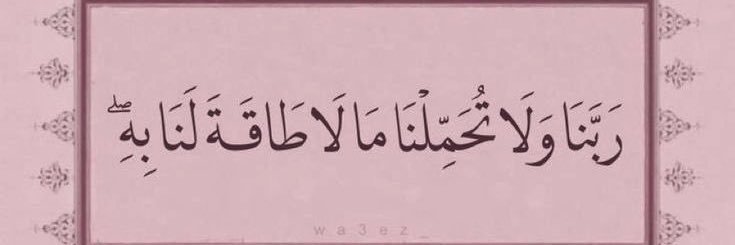 رَبَّنَا وَلَا تُحَمِّلْنَا مَا لَا طَاقَةَ لَنَا بِهِۦۖ
wa3ez_